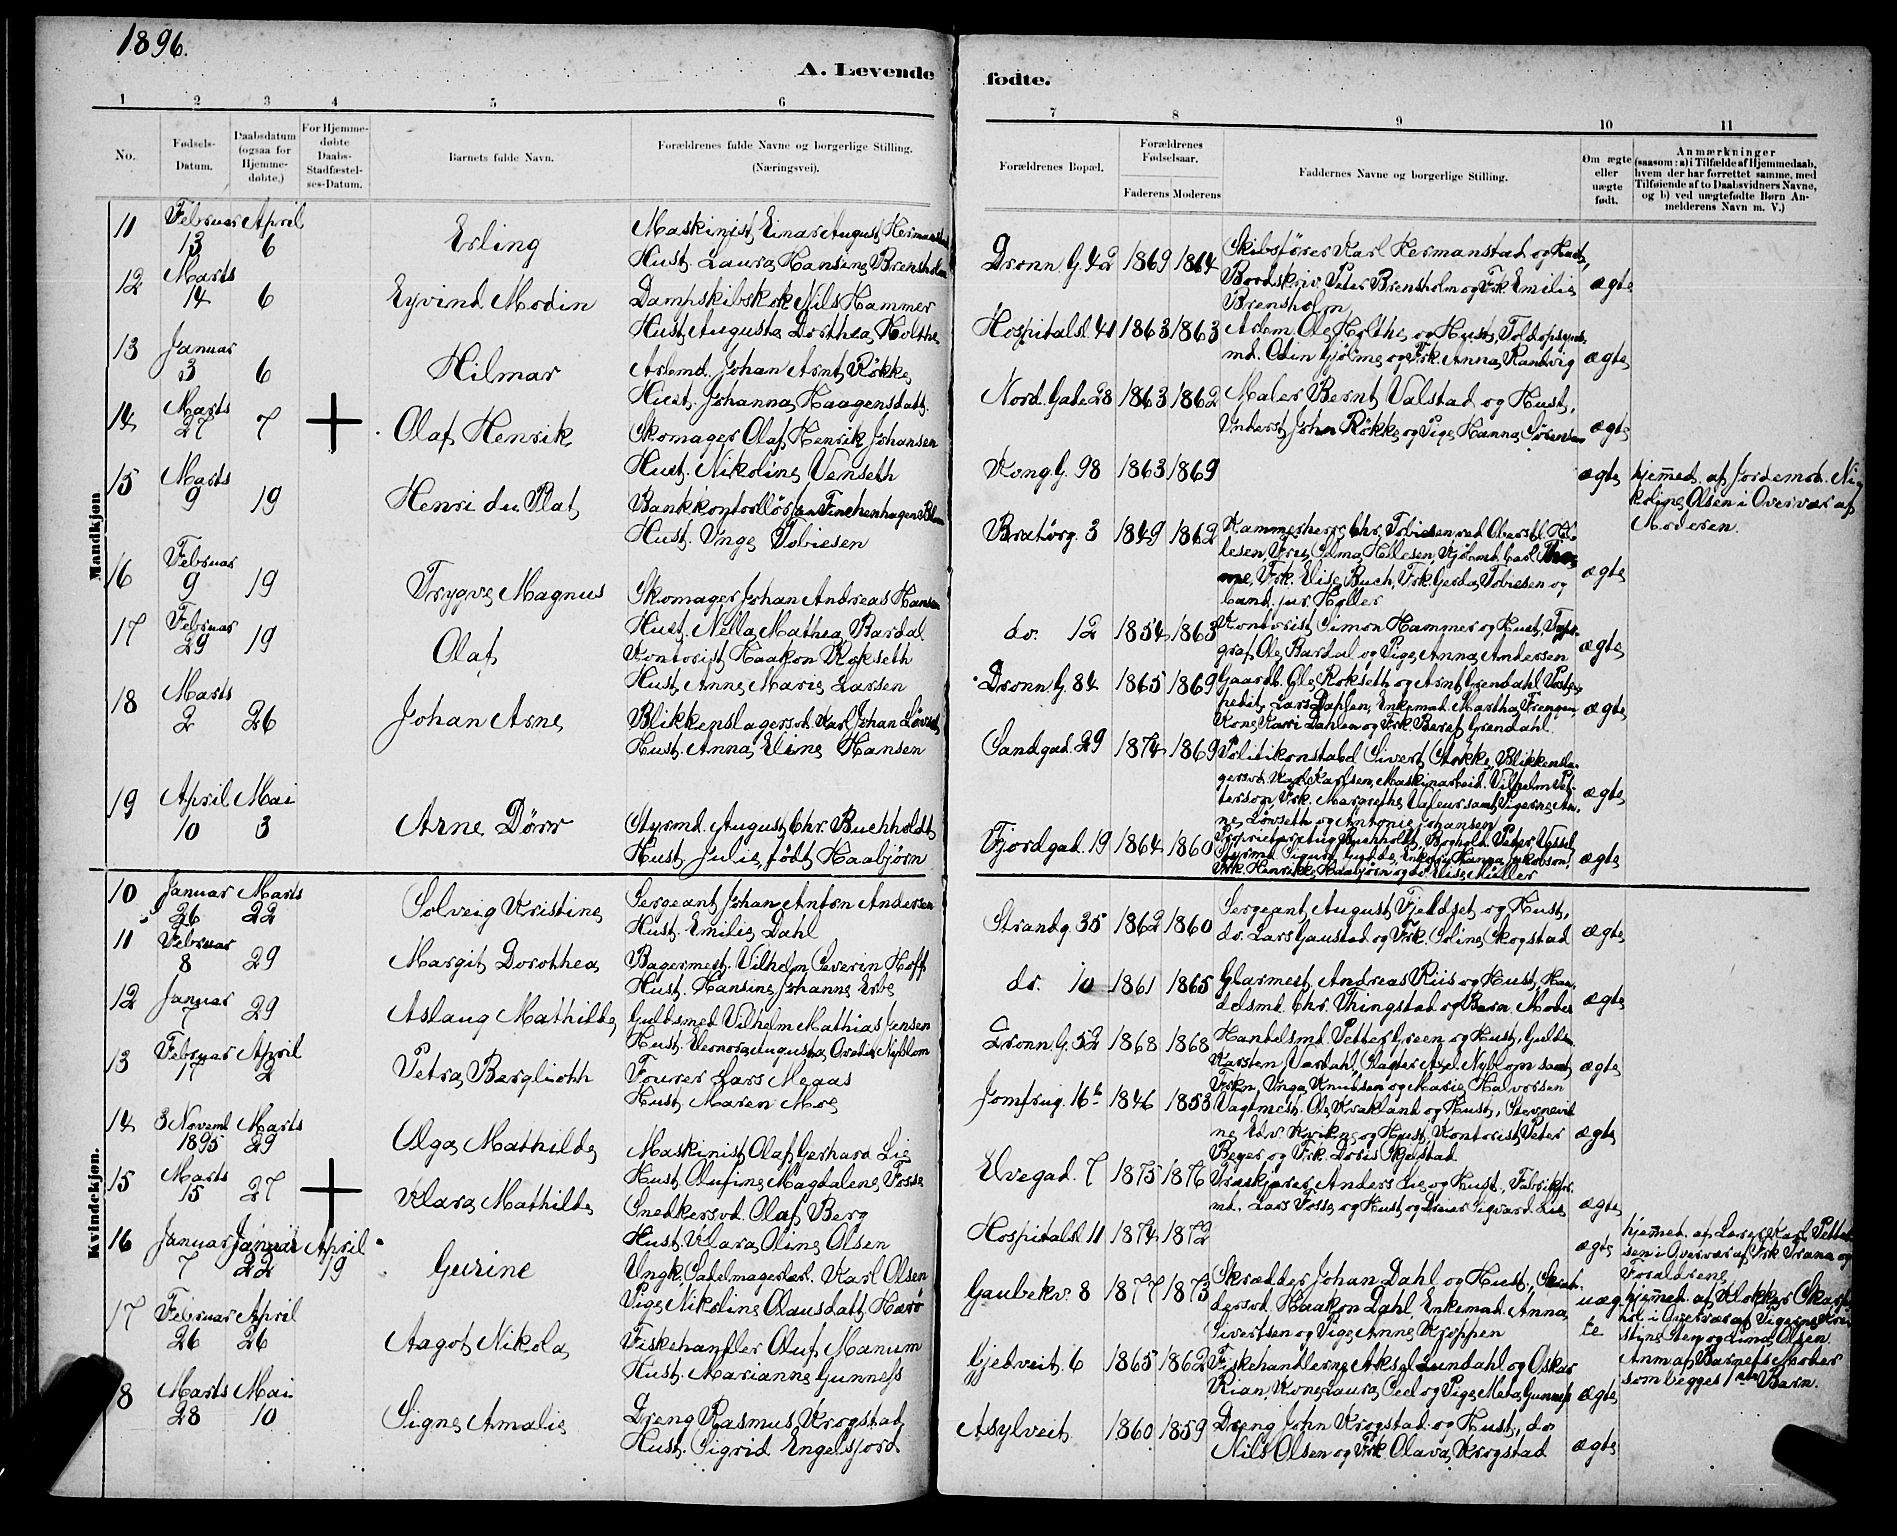 1896.
A. Levende
fødte.
1 2 3 4 5 6
7 8 9 10 11
No.
Fødsels-Datum.
Daabsdatum (ogsaa for Hjemme-døbte.)
For Hjemme-døbte Daabs-Stadfæstel-ses-Datum.
Barnets fulde Navn.
Forældrenes fulde Navne og borgerlige Stilling. (Næringsvei).
Forældrenes Bopæl.
Forældrenes Fødselsaar.
Faderens Moderens
Faddernes Navne og borgerlige Stilling.
Om ægte eller uægte født.
Anmærkninger
(saasom: a) i Tilfælde af Hjemmedaab,
hvem der har forrettet samme, med
Tilføiende af to Daabsvidners Navne,
og b) ved uægtefødte Børn An-
melderens Navn m. V.)
Mandkjøn
11 Februar 13 April 6 Erling
Maskinist Einar August Hermanstad
Hust. Laura Hansine Brensholm
Dronn. G. 42 1869 1864
Skibsfører Karl Hermanstad og Hust,
Bordskriv. Peter Brensholm og Frk Emilie
Brensholm
ægte
12 Marts 14 6 Eyvind Modin
Dampskibskok Nils Hammer
Hust Augusta Dorthea Holthe
Hospitalsl 41 1863 1863
Arbm. Ole Holthe og Hust, Toldopsyns
md. Odin Gjølme og Frk. Anna Ranhvig
ægte
13 Januar 3 6 Hilmar
Arbmd. Johan Arnt Røkke
Hust. Johanna Haagensdatt.
Nord. Gade 28 1863 1862
Maler Bernt Valstad og Hust,
Underst John Røkke og Pige Hanna Sørensen
ægte
14 Marts 27 7 Olaf Henrik
Skomager Olaf Henrik Johansen
Hust. Nikoline Venseth
Kong G. 98 1863 1869
ægte
hjemmed. af Jordemod. Ni
koline Olsen i Overvær af
Moderen.
15 Marts 9 19 Henri du Plat
Bankkontrollør Finchenhagen
Hust. Inga Tobiesen
Bratørg. 3 1849 1862
Kammerherre Chr. Tobiesen ved Oberstl.
Selma
Frk. Elise Buch, Frk. Gerda Tobiesen og
Cand. jur. Høller
ægte
16 Februar 9 19 Trygve Magnus
Skomager Johan Andreas Hansen
Hust. Nella Mathea Bardal
do. 12 1854 1863
Kontorist Simon Hammer og Hust, Typo-
graf Ole Bardal og Pige Anna Andersen
ægte
17 Februar 29 19 Olaf
Kontorist Haakon Rokseth
Hust Anne Marie Larsen
Dronn. G. 84 1865 1869
Gaardb. Ole Rokseth og Arnt Grendahl Postex-
pedit. Lars Dahlen, Enkemad. Martha Frengen,
Kone Kari Dahlen og Frk Beret Grendahl.
ægte
18 Marts 2 26 Johan Arne
Blikkenslagersvd. Karl Johan Løvseth
Hust. Anna Eline Hansen
Sandgad. 29 1874 1869
Politikonstabel Sivert Stokke, Blikkensla-
gersvd. Karl Karlsen, Maskinarbeid. Vilhelm Pet-
terson, Frk. Margrethe Valeur samt Pigerne An-
ne Løvseth og Antonie Johansen
ægte
19 April 10 Mai 3 Arne Dørr
Styrmd. August Chr. Buchholdt
Hust. Julie født Haabjørn
Fjordgad. 19 1864 1860
Proprietær Aug. Buchholdt, Boghold. Peter Yssel,
Styrmd. Sigurd Lydde, Enkefru Hanna Jakobson,
Frk. Henrikke Haabjørn og do Elise Müller
ægte
Kvindekjøn.
10 Januar 26 Marts 22 Solveig Kristine
Sergeant Johan Anton Andersen
Hust. Emilie Dahl
Strandg. 35 1862 1860
Sergeant August Fjeldset og Hust,
do. Lars Gaustad og Frk. Soline Skogstad
ægte
11 Februar 8 29 Margit Dorothea
Bagermest. Vilhelm Severin Hoff
Hust. Hansine Johanne Erbe
do. 10 1861 1865
Glarmest. Andreas Riis og Hust, Han-
delsmd. Chr. Thingstad og Barn. Moder
ægte
12 Januar 7 29 Aslaug Mathilde
Guldsmed Vilhelm Mathias Jensen
Hust. Eleonora Augusta Ovedia Nyblom
Dronn. G. 52 1868 1868
Handelsmd. Petter Green og Hust, Guldsm.
Karsten Værdahl, Slagter Axel Nyblom samt
Frkn. Inga Knudsen og Marie Halvorsen
ægte
13 Februar 17 April 2 Petra Bergliothh
Fourer Lars Megas
Hust Maren Moe
Jomfrug. 16 b 1846 1853
Vagtmest. Ole Krakland og Hust, Stevnevid
ne Edv. Kvikne og Hust, Kontorist Peter
Beyer og Frk. Doris Skjelstad
ægte
14 3 Novemb 1895 Marts 29 Olga Mathilde
Maskinist Olaf Gerhard Lie
Hust Olufine Magdalene Fosse
Elvegad. 7 1875 1876
Træskjærer Anders Lie og Hust, Fabrikfor.
md. Lars Fosse og Hust og Dreier Sigvard Lie
ægte
15 Marts 15 27 Klara Mathilde
Snedkersvd. Olaf Berg
Hust. Klara Oline Olsen
Hospitalsl 11 1874 1872
ægte
hjemmed. af Lærer Karl Petter
sen i Overvær af Frk Trana og
Forældrene
16 Januar 7 Januar 22 April 19 Gurine
Ungk. Sadelmagerlærl. Karl Olsen
Pige Nikoline Olausdatt. Harø
Gaubekv. 8 1877 1873
Skrædder Johan Dahl og Hust, Skræd-
dersvd. Haakon Dahl, Enkemad. Anna
Sivertsen og Pige Anne Kroppen
uæg
te
hjemmed. af Klokker Skarp
hol. i Overvær af Pigerne Kri
stine Berg og Lina Olsen.
Anm. af Barnets Moder
som begges 1ste Barn.
17 Februar 26 April 26 Aagot Nikola
Fiskehandler Oluf Manum
Hust. Marianne Gunness
Gjetveit. 6 1865 1862
Fiskehandlerne Aksel Lundahl og Oskar
Rian, Kone Laura Ceel og Pige Meta Gunness
ægte
8 Marts 28 Mai 10 Signe Amalie
Dreng Rasmus Krogstad
Hust. Sigrid Engelsjord
Asylveit 1860 1859
Dreng John Krogstad og Hust, do
Nils Olsen og Frk. Olava Krogstad
ægte